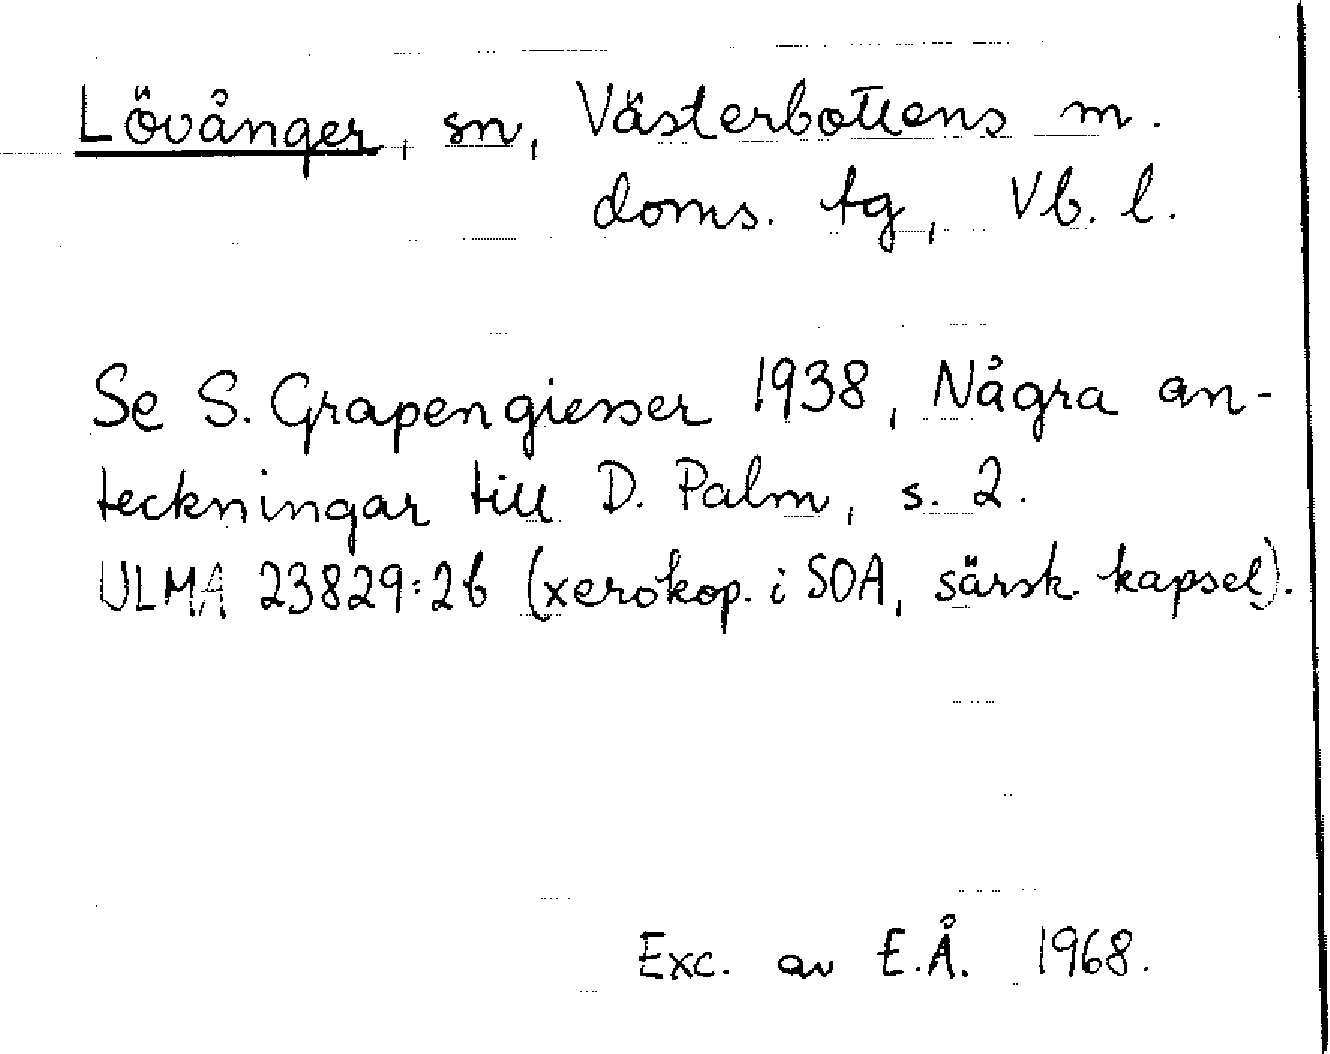 Lövånger, sn, Västerbottens m.
doms. tg, Vb. l.
Se S. Grapengiesser 1938, Några an-
teckningar till D. Palm, s. 2.
ULMA 23829:26 (xerokop. i SOA, särsk. kapsel).
Exc. av E.Å. 1968.